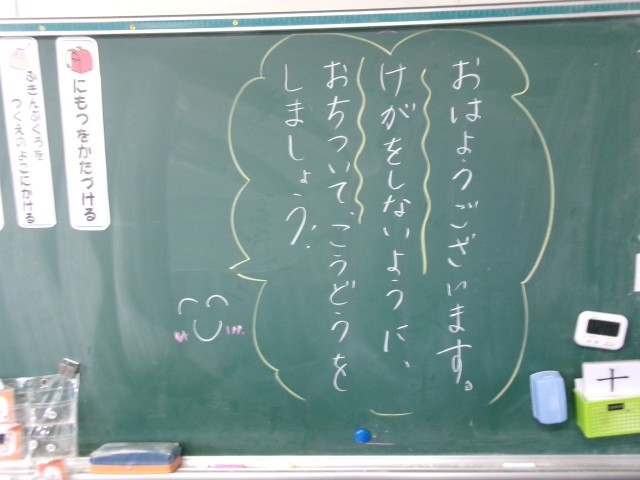 おはようございます。
けがをしないように、
おちついて、こうどうを
しましょう。
にもつをかたづける
ふきんぶくろを
つくえのよこにかける